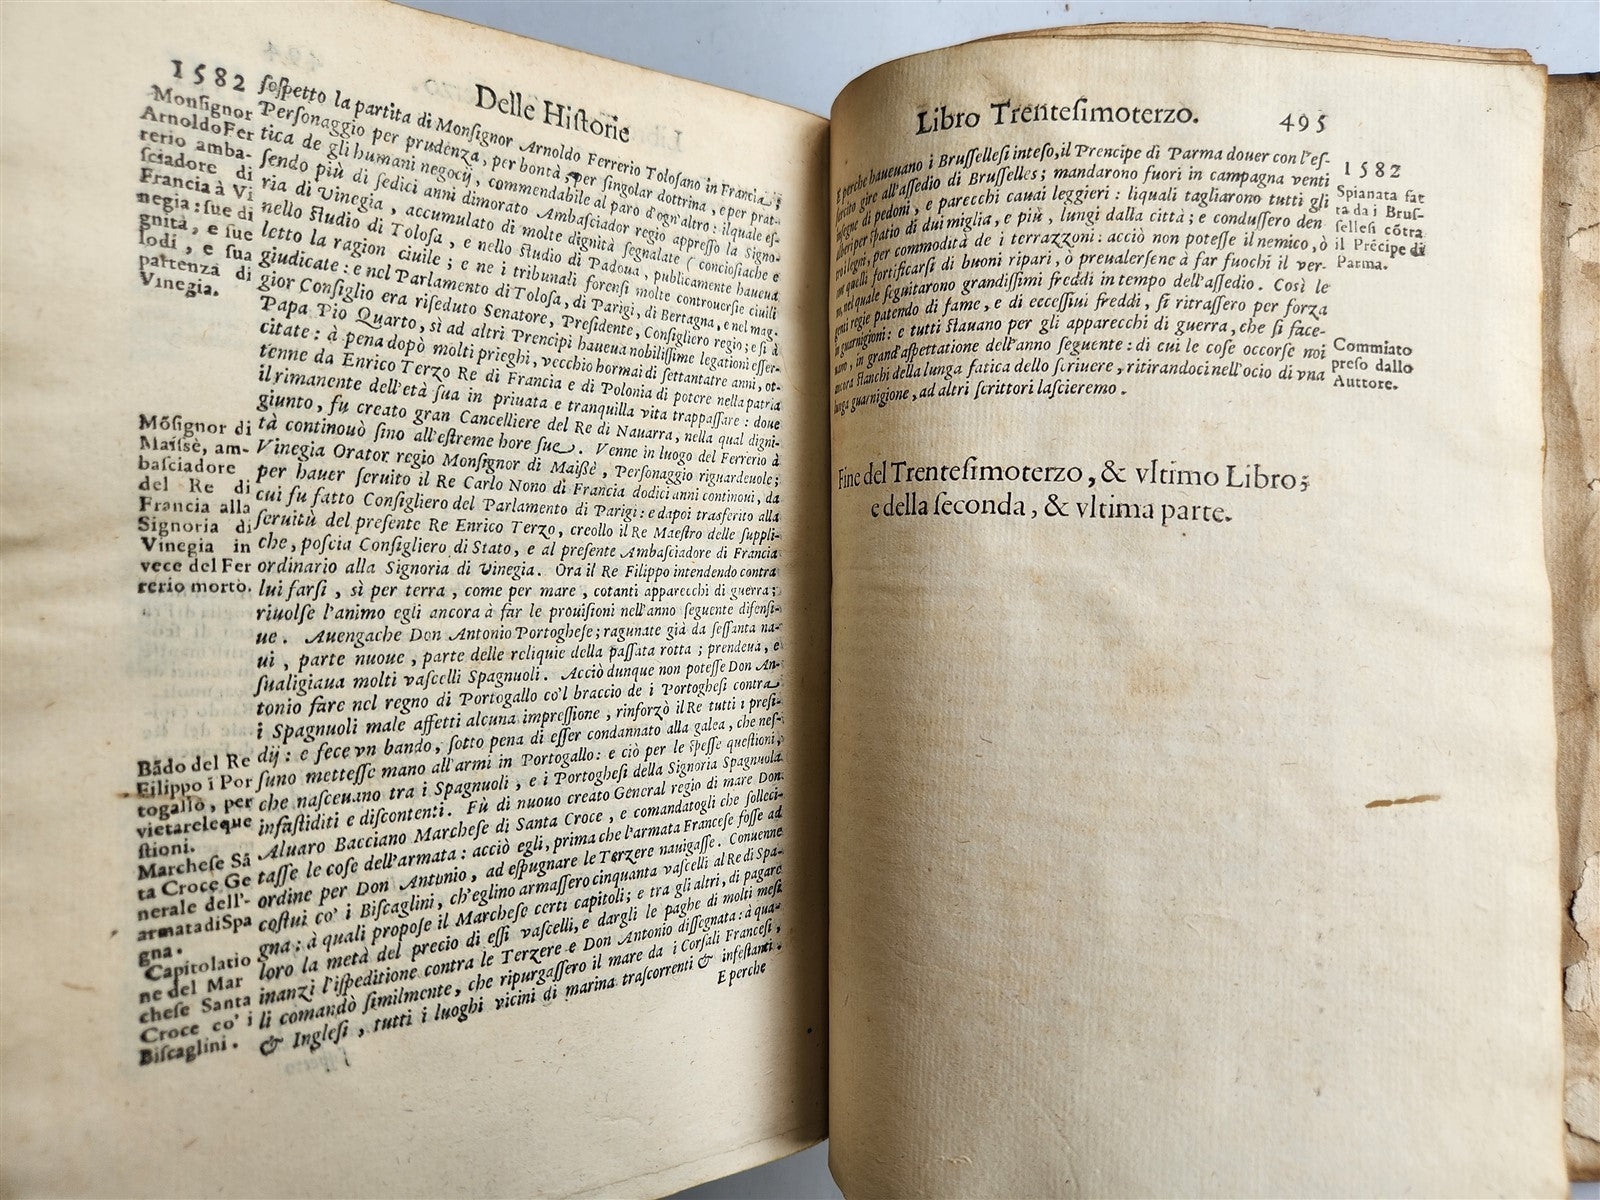 Delle Historie
1582
Monsignor
Arnoldo Fer
rerio amba-
sciadore di
Francia à Vi
negia: sue di
gnità, e sue
lodi, e sua
partenza di
Vinegia.
sospetto la partita di Monsignor Arnoldo Ferrerio Tolosano in Francia;
Personaggio per prudenza, per bontà, per singolar dottrina, e per prat-
tica de gli humani negocij, commendabile al paro d'ogn'altro: ilquale es-
sendo più di sedici anni dimorato Ambasciador regio appresso la Signo-
ria di Vinegia, accumulato di molte dignità segnalate (conciosiache e
nello studio di Tolosa, e nello studio di Padoua, publicamente haueua
letto la ragion ciuile; e ne i tribunali forensi molte controuersie ciuili
giudicate: e nel Parlamento di Tolosa, di Parigi, di Bertagna, e nel mag-
gior Consiglio era riseduto Senatore, Presidente, Consigliero regio; e si à
Papa Pio Quarto, sì ad altri Prencipi haueua nobilissime legationi esser-
citate: à pena dopò molti prieghi, vecchio hormai di settantatre anni, ot-
tenne da Enrico Terzo Re di Francia e di Polonia di potere nella patria
il rimanente dell'età sua in priuata e tranquilla vita trappassare: doue
giunto, fu creato gran Cancelliere del Re di Nauarra, nella qual digni-
tà continouò sino all'estreme hore sue. Venne in luogo del Ferrerio à
Vinegia Orator regio Monsignor di Maissè, Personaggio riguardeuole;
per hauer seruito il Re Carlo Nono di Francia dodici anni continoui, da
cui fu fatto Consigliero del Parlamento di Parigi: e dapoi trasferito alla
seruitù del presente Re Enrico Terzo, creollo il Re Maestro delle suppli-
che, poscia Consigliero di Stato, e al presente Ambasciadore di Francia
ordinario alla Signoria di Vinegia. Ora il Re Filippo intendendo contra
lui farsi, sì per terra, come per mare, cotanti apparecchi di guerra;
riuolse l'animo egli ancora à far le prouisioni nell'anno seguente difensi-
ue. Auengache Don Antonio Portoghese; ragunate già da sessanta na-
ui, parte nuoue, parte delle reliquie della passata rotta; prendeua, e
sualigiaua molti vascelli Spagnuoli. Acciò dunque non potesse Don An-
tonio fare nel regno di Portogallo co'l braccio de i Portoghesi contra
i Spagnuoli male affetti alcuna impressione, rinforzò il Re tutti i presi-
dij: e fece vn bando, sotto pena di esser condannato alla galea, che nes-
suno mettesse mano all'armi in Portogallo: e ciò per le spesse questioni,
che nasceuano tra i Spagnuoli, e i Portoghesi della Signoria Spagnuola
infastiditi e discontenti. Fù di nuouo creato General regio di mare Don
Aluaro Bacciano Marchese di Santa Croce, e comandatogli che solleci-
tasse le cose dell'armata: acciò egli, prima che l'armata Francese fosse ad
ordine per Don Antonio, ad espugnare le Terzere nauigasse. Conuenne
costui co' i Biscaglini, ch'eglino armassero cinquanta vascelli al Re di Spa-
gna: à quali propose il Marchese certi capitoli; e tra gli altri, di pagare
loro la metà del precio di essi vascelli, e dargli le paghe di molti mesi
inanzi l'ispeditione contra le Terzere e Don Antonio dissegnata: à qua-
li comandò similmente, che ripurgassero il mare da i Corsali Francesi,
& Inglesi, tutti i luoghi vicini di marina trascorrenti & infestanti.
E perche
Mõsignor di
Maissè, am-
basciadore
del Re di
Francia alla
Signoria di
Vinegia in
vece del Fer
rerio morto.
Bãdo del Re
Filippo ĩ Por
togallo, per
vietare le que
stioni.
Marchese Sã
ta Croce Ge
nerale dell'-
armata di Spa
gna.
Capitolatio
ne del Mar
chese Santa
Croce co' i
Biscaglini.
Libro Trentesimoterzo. 495
E perche haueuano i Brussellesi inteso, il Prencipe di Parma douer con l'es-
sercito gire all'assedio di Brusselles; mandarono fuori in campagna venti
insegne di pedoni, e parecchi cauai leggieri: liquali tagliarono tutti gli
alberi per spatio di due miglia, e più, lungi dalla città; e condussero den
tro i legni, per commodità de i terrazzoni: acciò non potesse il nemico, ò
con quelli fortificarsi di buoni ripari, ò preualersene à far fuochi il ver-
no, nel quale seguitarono grandissimi freddi in tempo dell'assedio. Così le
genti regie patendo di fame, e di eccessiui freddi, si ritrassero per forza
in guarnigioni: e tutti stauano per gli apparecchi di guerra, che si face-
uano, in grand'aspettatione dell'anno seguente: di cui le cose occorse noi
ancora stanchi della lunga fatica dello scriuere, ritirandoci nell'ocio di vna
lunga guarnigione, ad altri scrittori lascieremo.
1582
Spianata fat
ta da i Brus-
sellesi cõtra
il Prẽcipe di
Parma.
Commiato
preso dallo
Auttore.
Fine del Trentesimoterzo, & vltimo Libro;
e della seconda, & vltima parte.